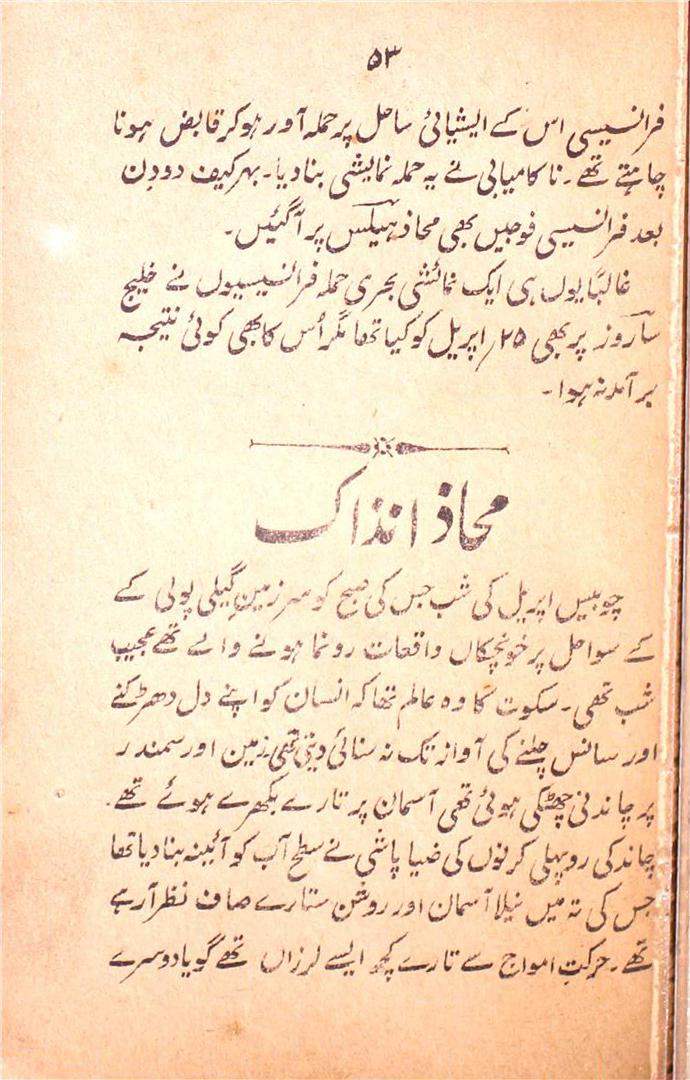 ۵۳
فرانسیسی اس کے ایشیائی ساحل پر حملہ آور ہوکر قابض ہونا
چاہتے تھے۔ ناکامیابی نے یہ حملہ نمایشی بنا دیا۔ بہر کیف دو دن
بعد فرانسیسی فوجیں بھی محاذ ہیلکس پر آگئیں۔
غالباً یوں ہی ایک نمائشی بحری حملہ فرانسیسیوں نے خلیج
ساروز پر بھی ۲۵؍ اپریل کو کیا تھا مگر اُس کا بھی کوئی نتیجہ
برآمد نہ ہوا۔
محاذ انذاک
چوبیس اپریل کی شب جس کی صبح کو سرزمینِ گیلی پولی کے
کے سواحل پر خونچکاں واقعات رونما ہونے والے تھے عجیب
شب تھی۔ سکوت کا وہ عالم تھا کہ انسان کو اپنے دل دھڑکنے
اور سانس چلنے کی آواز تک نہ سنائی دیتی تھی۔ زمین اور سمندر
پر چاندنی چھٹکی ہوئی تھی آسمان پر تارے بکھرے ہوئے تھے۔
چاند کی روپہلی کرنوں کی ضیا پاشی نے سطح آب کو آئینہ بنا دیا تھا
جس کی تہ میں نیلا آسمان اور روشن ستارے صاف نظر آ رہے
تھے۔ حرکتِ امواج سے تارے کچھ ایسے لرزاں تھے گویا دوسرے